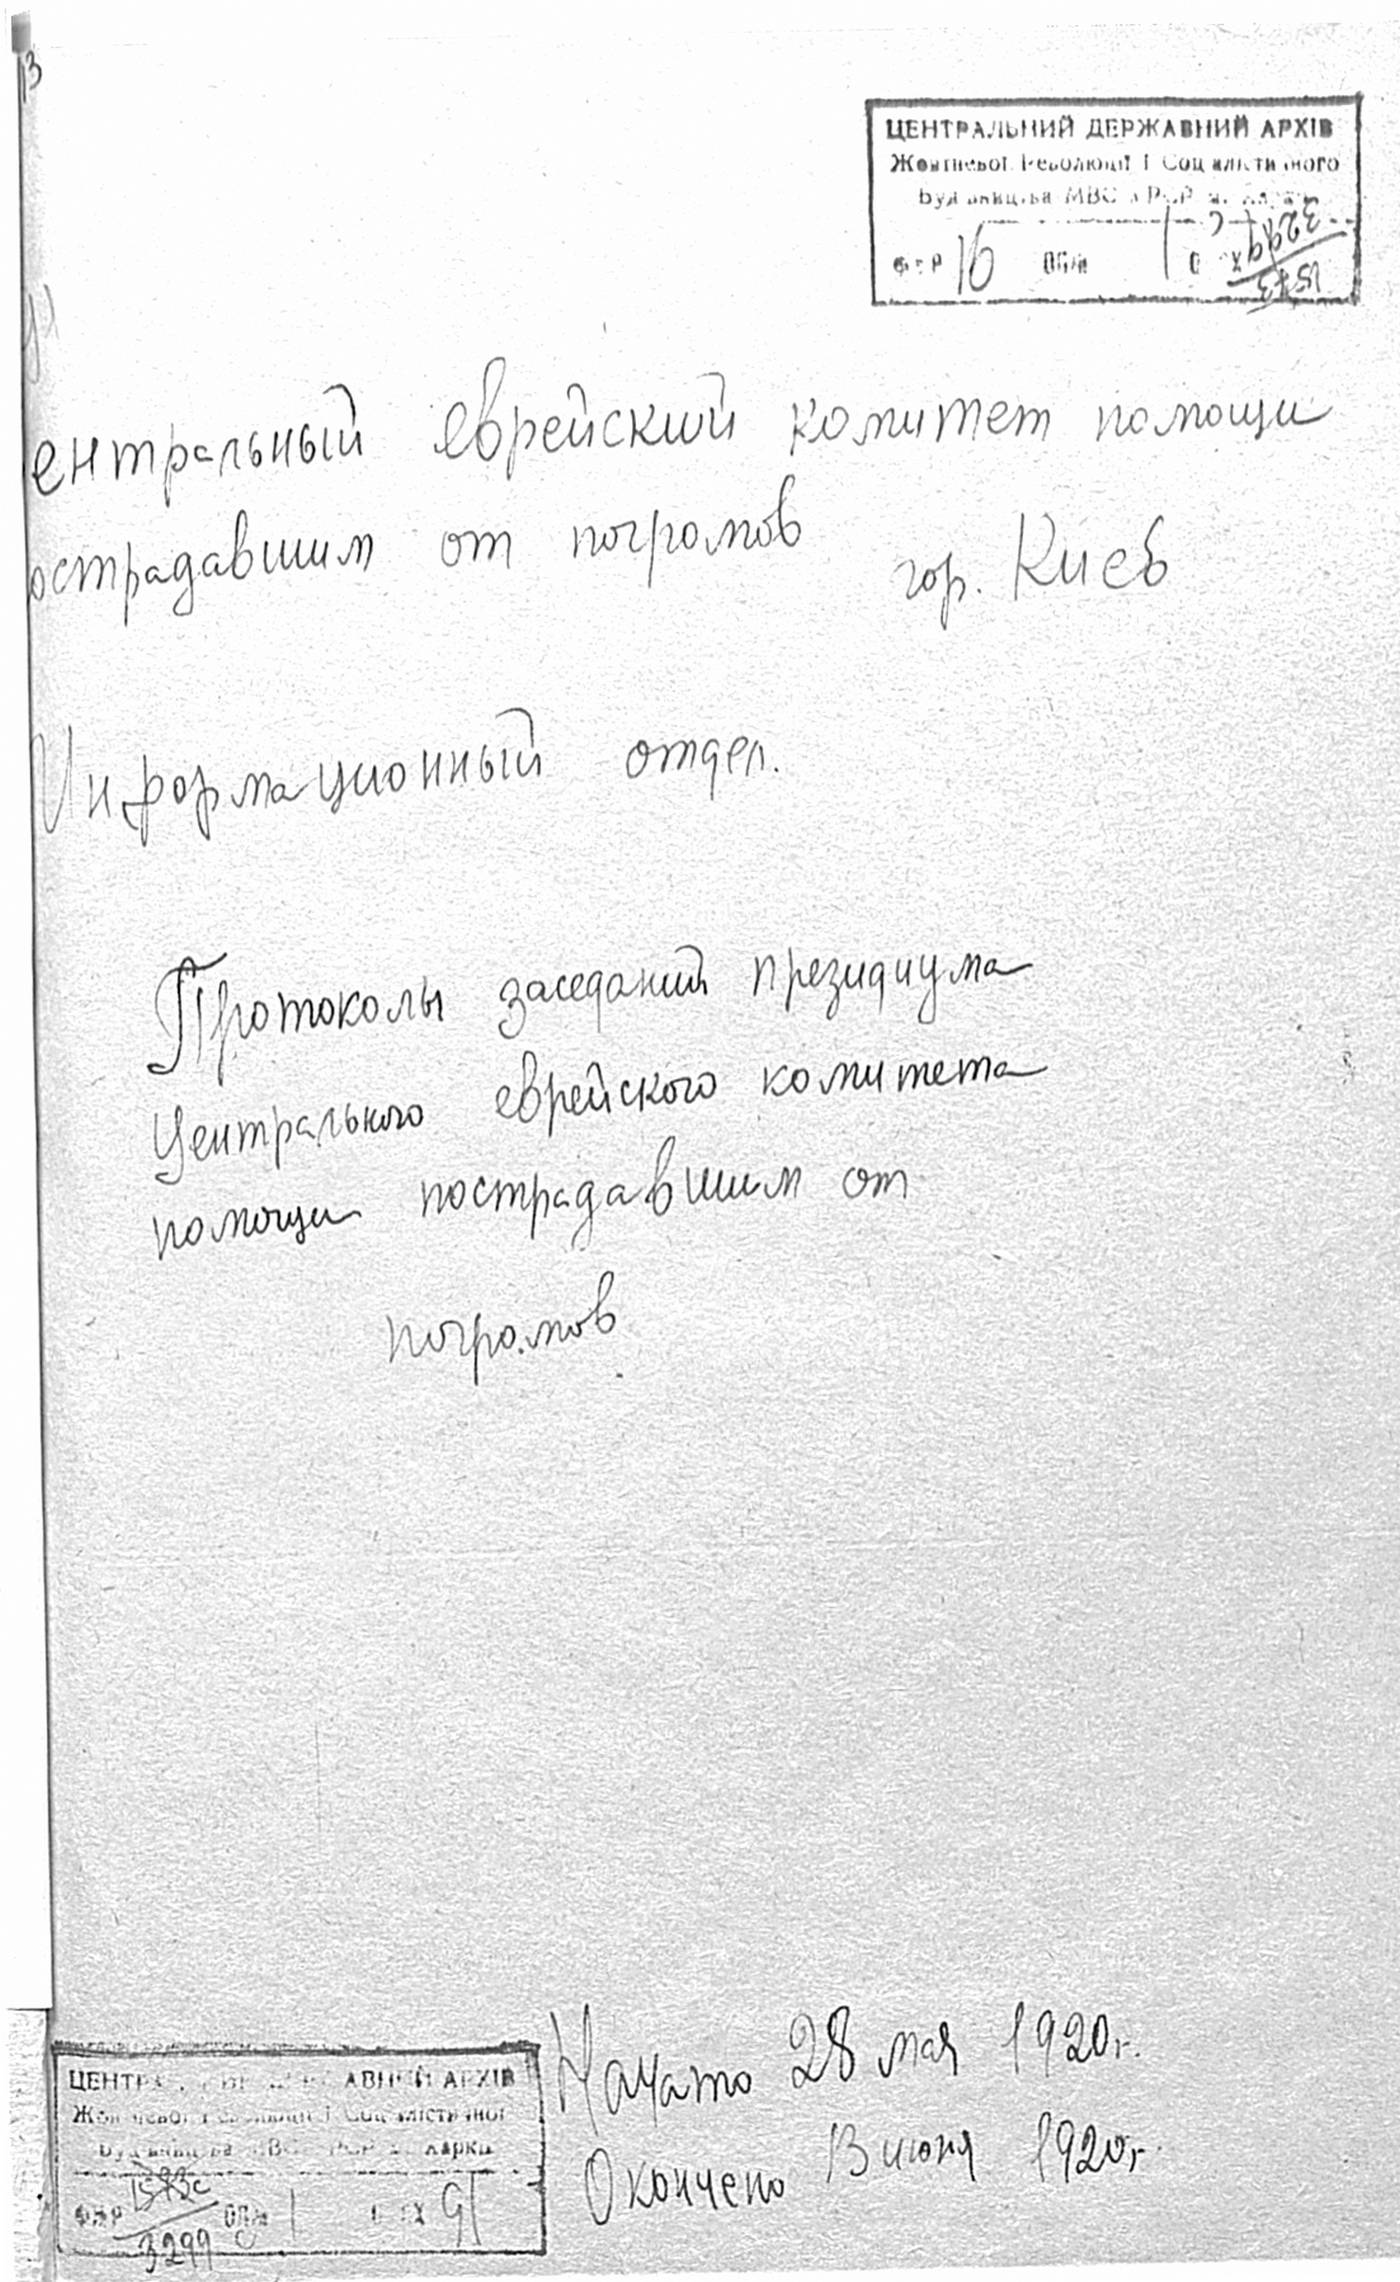 13
ЦЕНТРАЛЬНИЙ ДЕРЖАВНИЙ АРХІВ
Жовтневої Революції і Соціалістичного
Будівництва МВС
16 1
3299
1573
ентральный еврейский комитет помощи
острадавшим от погромов гор. Киев
Информационный отдел.
Протоколы заседаний президиума
Центрального еврейского комитета
помощи пострадавшим от
погромов.
Начато 28 мая 1920 г.
Окончено 13 июня 1920 г.
ЦЕНТРАЛЬНИЙ ДЕРЖАВНИЙ АРХІВ
Жовтневої Революції і Соціалістичног
Будівництва МВС РСР м. Харків
1573с
3299 1 91